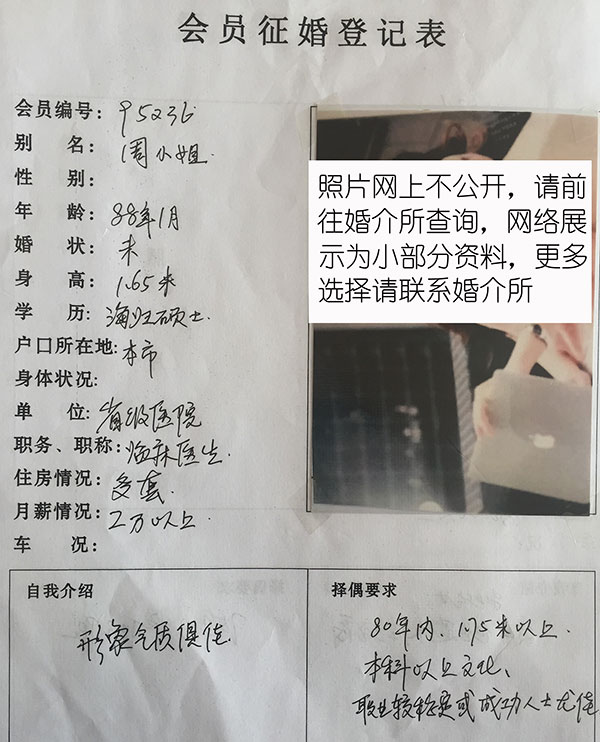 会员征婚登记表
会员编号：95236
别 名：周小姐
性 别：
年 龄：88年1月
婚 状：未
身 高：1.65米
学 历：海归硕士
户口所在地：本市
身体状况：
单 位：省级医院
职务、职称：临床医生
住房情况：多套
月薪情况：2万以上
车 况：
照片网上不公开，请前
往婚介所查询，网络展
示为小部分资料，更多
选择请联系婚介所
自我介绍
形象气质俱佳
择偶要求
80年内、1.75米以上.
本科以上文化、
职业较稳定或成功人士尤佳